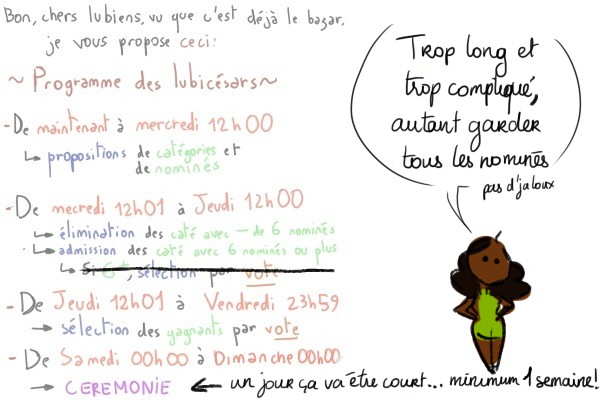 Bon, chers lubiens, vu que c'est déjà le bazar,
je vous propose ceci:
~ Programme des lubicésars ~
- De maintenant à mercredi 12h00
↳ propositions de catégories et
de nominés
- De mecredi 12h01 à Jeudi 12h00
↳ élimination des caté avec - de 6 nominés
↳ admission des caté avec 6 nominés ou plus
↳ Si 6+, sélection par vote
- De Jeudi 12h01 à Vendredi 23h59
→ sélection des gagnants par vote
- De Samedi 00h00 à Dimanche 00h00
→ CEREMONIE ← un jour ça va être court... minimum 1 semaine!
Trop long et
trop compliqué,
autant garder
tous les nominés
pas d'jaloux